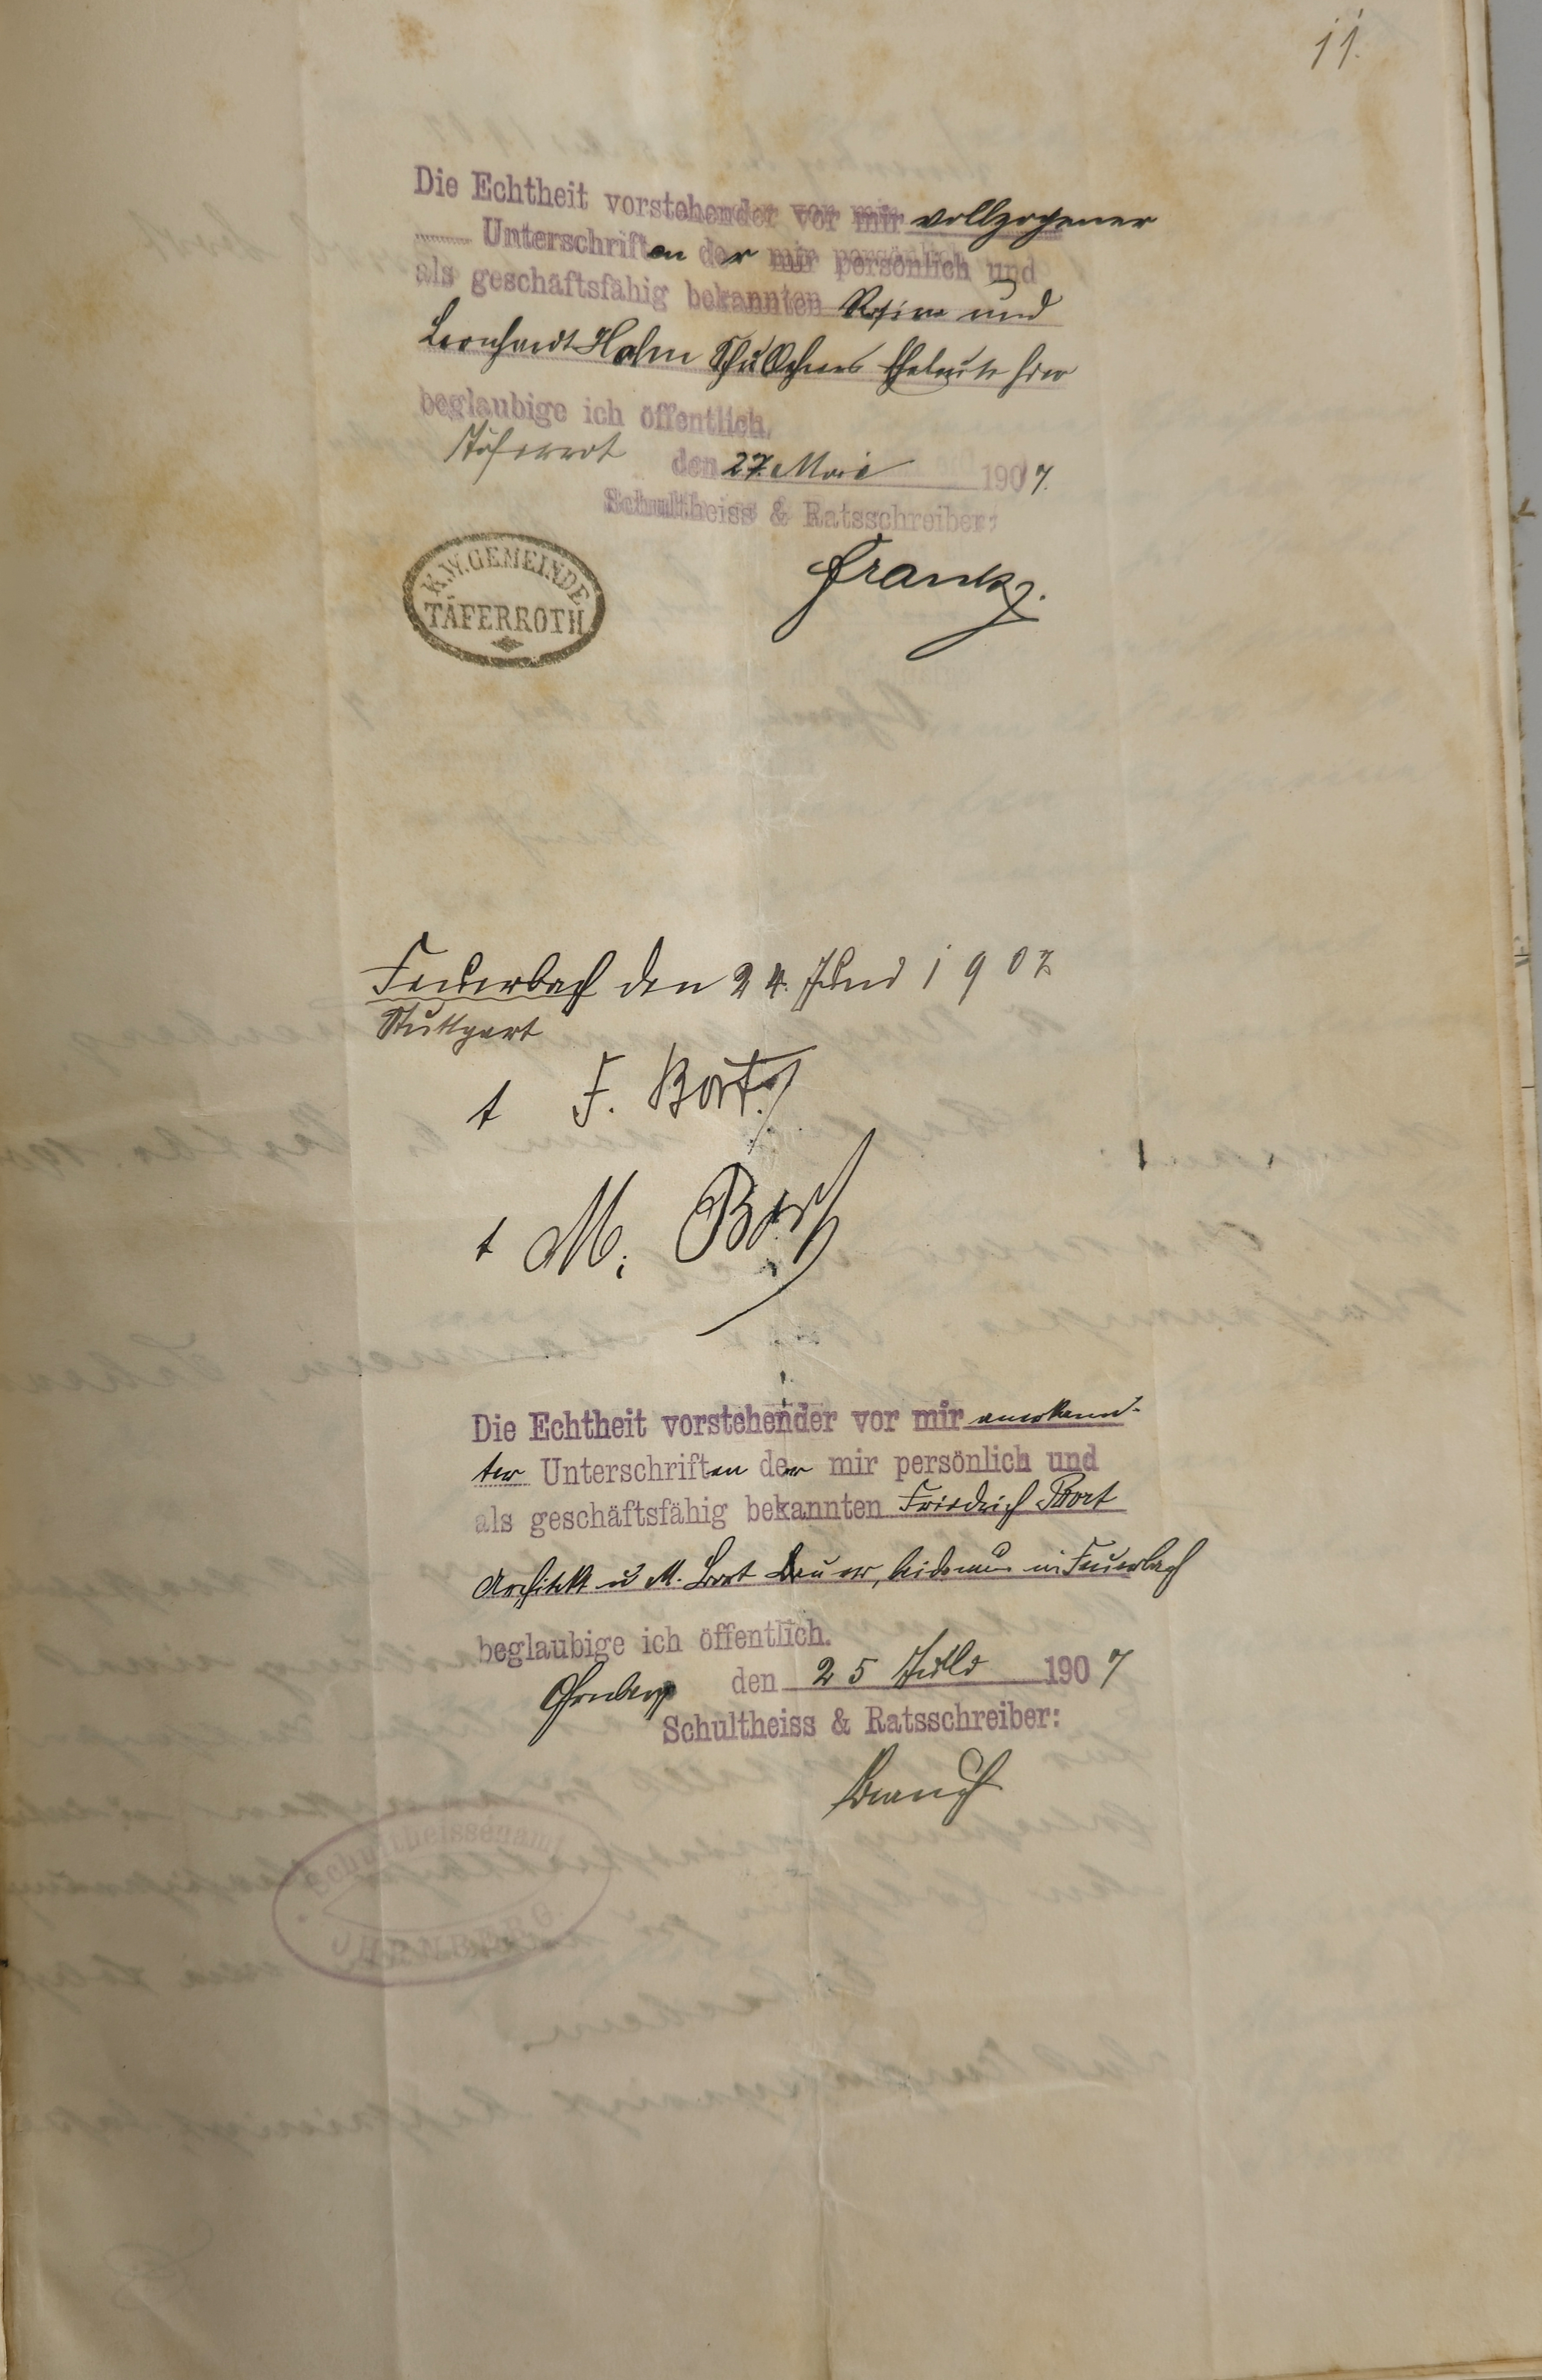 11.
Die Echtheit vorstehender vor mir vollzogener
Unterschriften der mir persönlich und
als geschäftsfähig bekannten Rosine und
Leonhardt Hahn Eheleute hier
beglaubige ich öffentlich.
Täferrot den 27. Mai 1907.
Schultheiss & Ratsschreiber:
K.W. GEMEINDE
TÄFERROTH
Frank.
Feuerbach den 24. Juni 1907
Stuttgart
t F. Bort
t M. Bort
Die Echtheit vorstehender vor mir anerkann-
ter Unterschriften der mir persönlich und
als geschäftsfähig bekannten Friedrich Bort
Architekt u M. Bort Bauer, in Feuerbach
beglaubige ich öffentlich.
den 25 1907
Schultheiss & Ratsschreiber:
Schultheissenamt